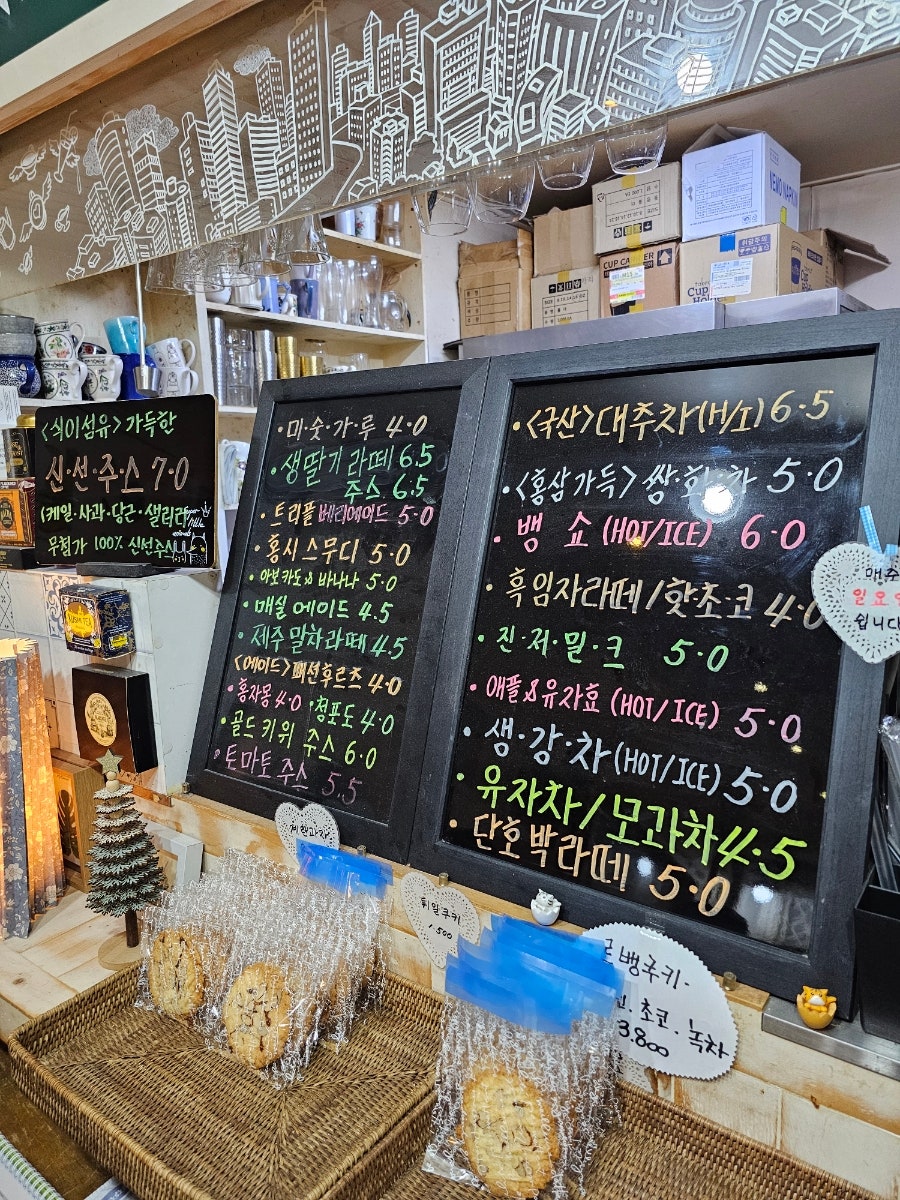 <식이섬유> 가득한
신·선·주스 7.0
(케일·사과·당근·샐러리
무첨가 100% 신선주스
·미·숫·가·루 4.0
·생딸기 라떼 6.5
주스 6.5
·트리플 베리에이드 5.0
·홍시 스무디 5.0
·아보카도&바나나 5.0
·매실 에이드 4.5
·제주 말차라떼 4.5
<에이드>패션후르츠 4.0
·홍자몽 4.0 ·청포도 4.0
·골드키위 주스 6.0
·토마토 주스 5.5
·<국산>대추차(H/I) 6.5
·<홍삼가득> 쌍·화·차 5.0
·뱅 쇼 (HOT/ICE) 6.0
·흑임자라떼/핫초코 4.0
·진·저·밀·크 5.0
·애플&유자효 (HOT/ICE) 5.0
·생·강·차(HOT/ICE) 5.0
·유자차/모과차 4.5
·단호박라떼 5.0
매주
일요
쉽니다
NEMO NAPKIN
CUP CARRIER
휘일쿠키
1,500
뱅쿠키-
초코. 녹차
3.800